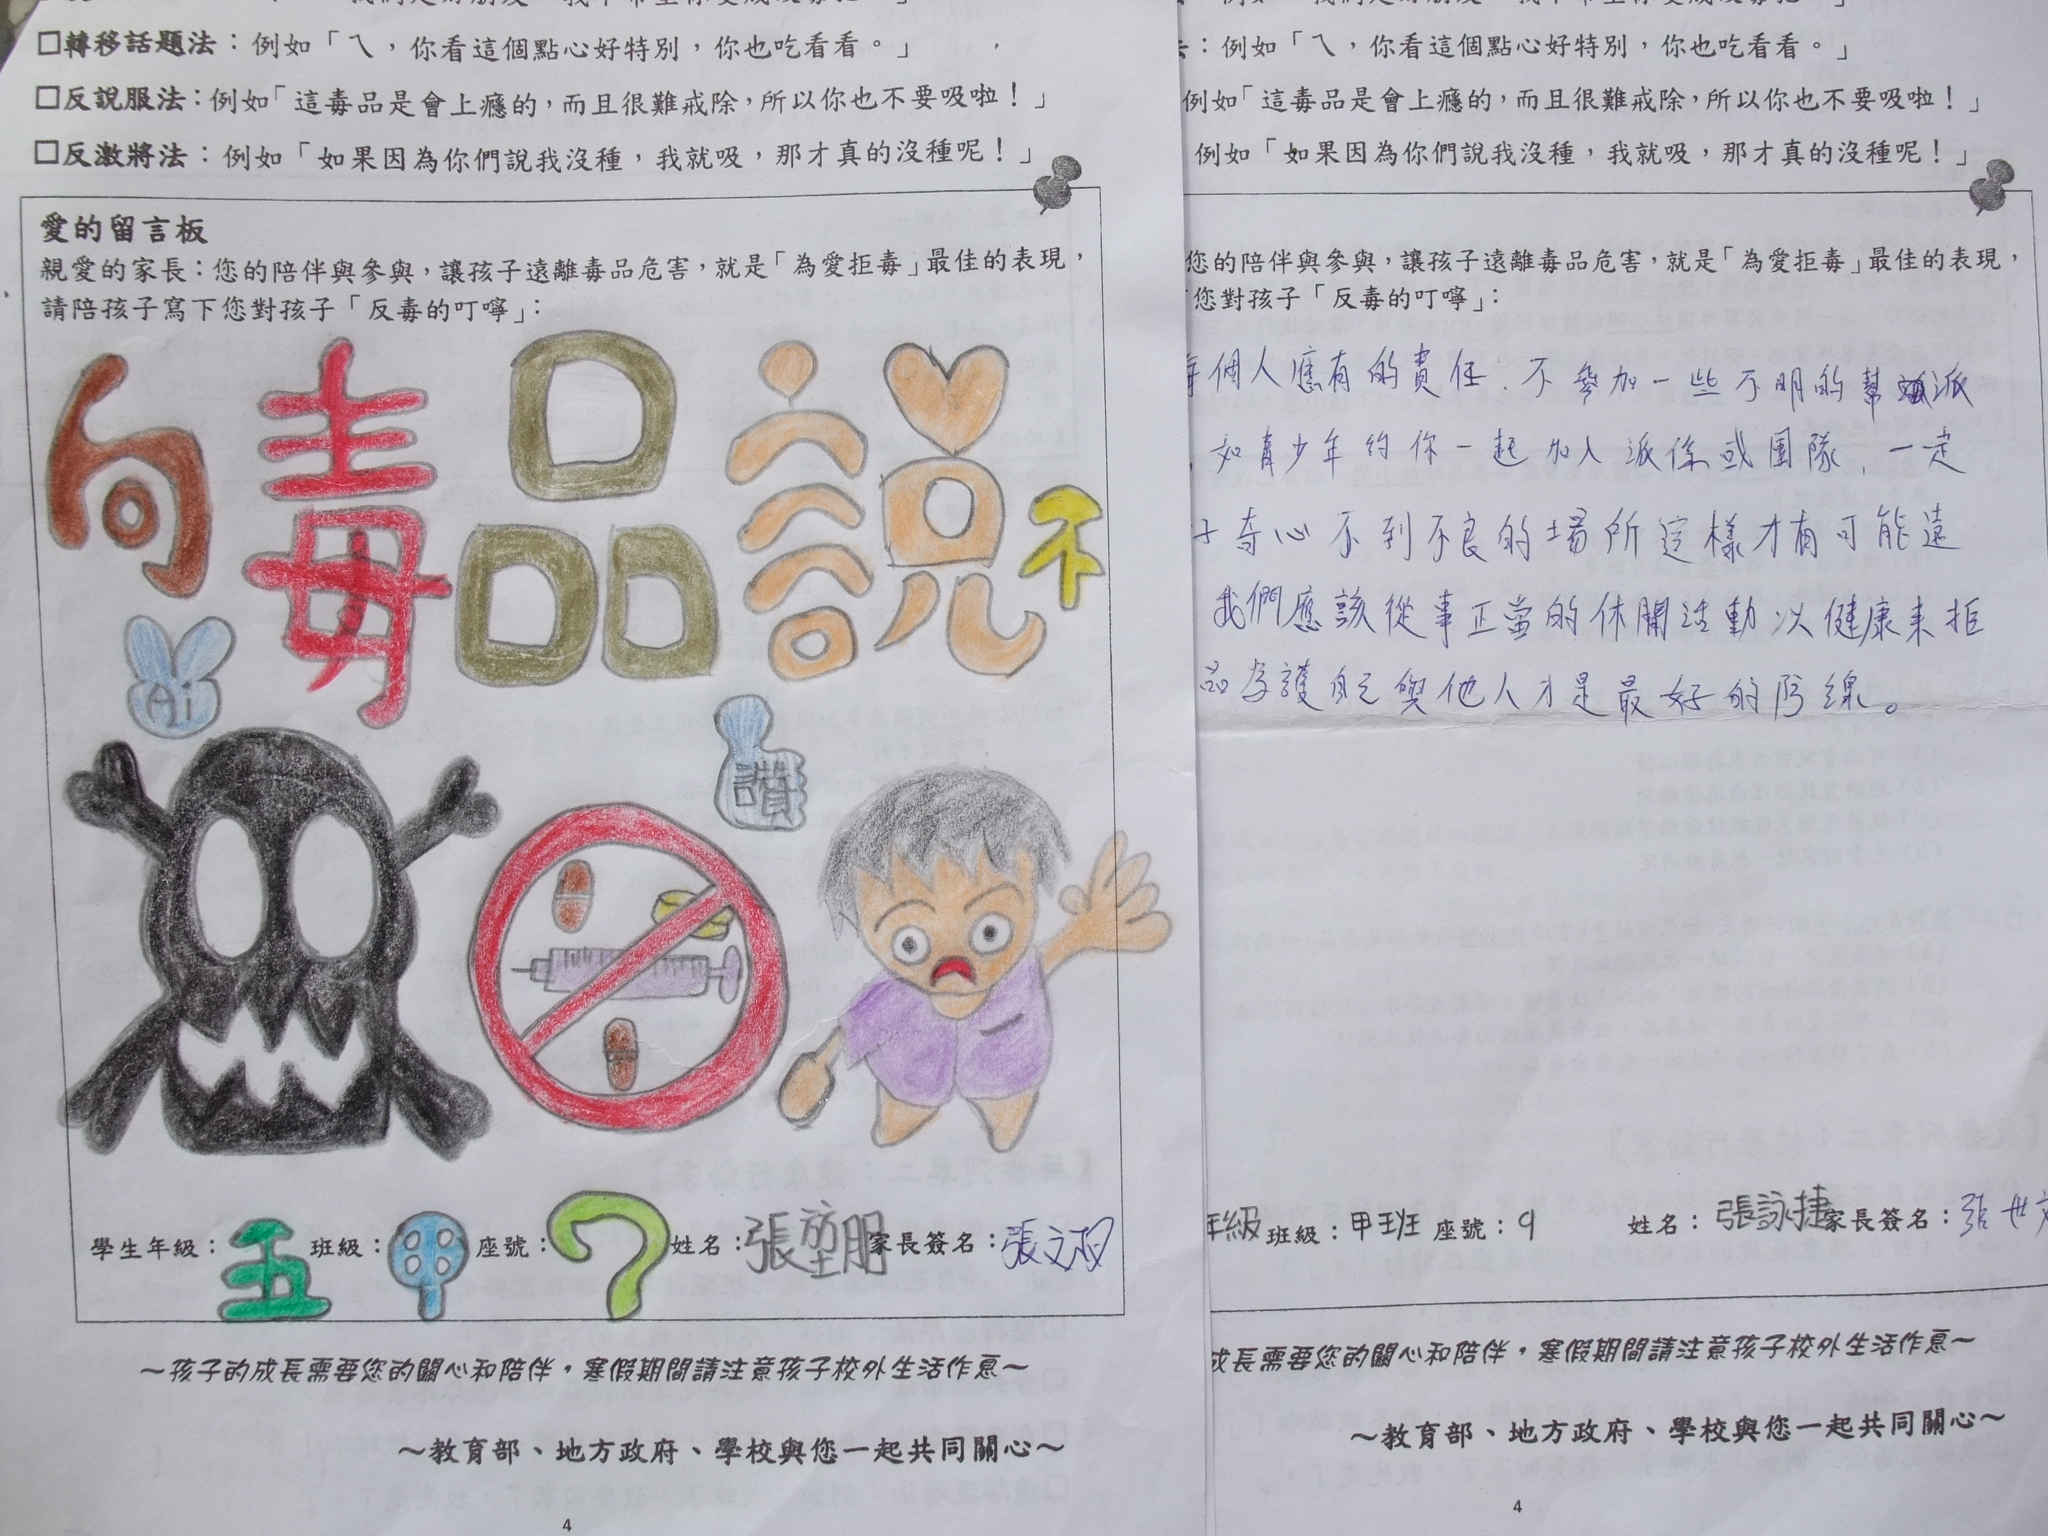 □轉移話題法：例如「ㄟ，你看這個點心好特別，你也吃看看。」
□反說服法：例如「這毒品是會上癮的，而且很難戒除，所以你也不要吸啦！」
□反激將法：例如「如果因為你們說我沒種，我就吸，那才真的沒種呢！」
愛的留言板
親愛的家長：您的陪伴與參與，讓孩子遠離毒品危害，就是「為愛拒毒」最佳的表現，
請陪孩子寫下您對孩子「反毒的叮嚀」：
向毒品說不
Ai
讚
學生年級：五 班級：甲 座號：7 姓名：張堃朋 家長簽名：張文
～孩子的成長需要您的關心和陪伴，寒假期間請注意孩子校外生活作息～
～教育部、地方政府、學校與您一起共同關心～
4
：例如「ㄟ，你看這個點心好特別，你也吃看看。」
例如「這毒品是會上癮的，而且很難戒除，所以你也不要吸啦！」
例如「如果因為你們說我沒種，我就吸，那才真的沒種呢！」
您的陪伴與參與，讓孩子遠離毒品危害，就是「為愛拒毒」最佳的表現，
您對孩子「反毒的叮嚀」：
每個人應有的責任、不參加一些不明的幫派
，如有少年約你一起加入派係或團隊，一定
奇心不到不良的場所這樣才有可能遠
我們應該從事正當的休閒活動以健康來拒
品 護自己與他人才是最好的防線。
年級 班級：甲班 座號：9 姓名：張詠捷 家長簽名：張世
成長需要您的關心和陪伴，寒假期間請注意孩子校外生活作息～
～教育部、地方政府、學校與您一起共同關心～
4